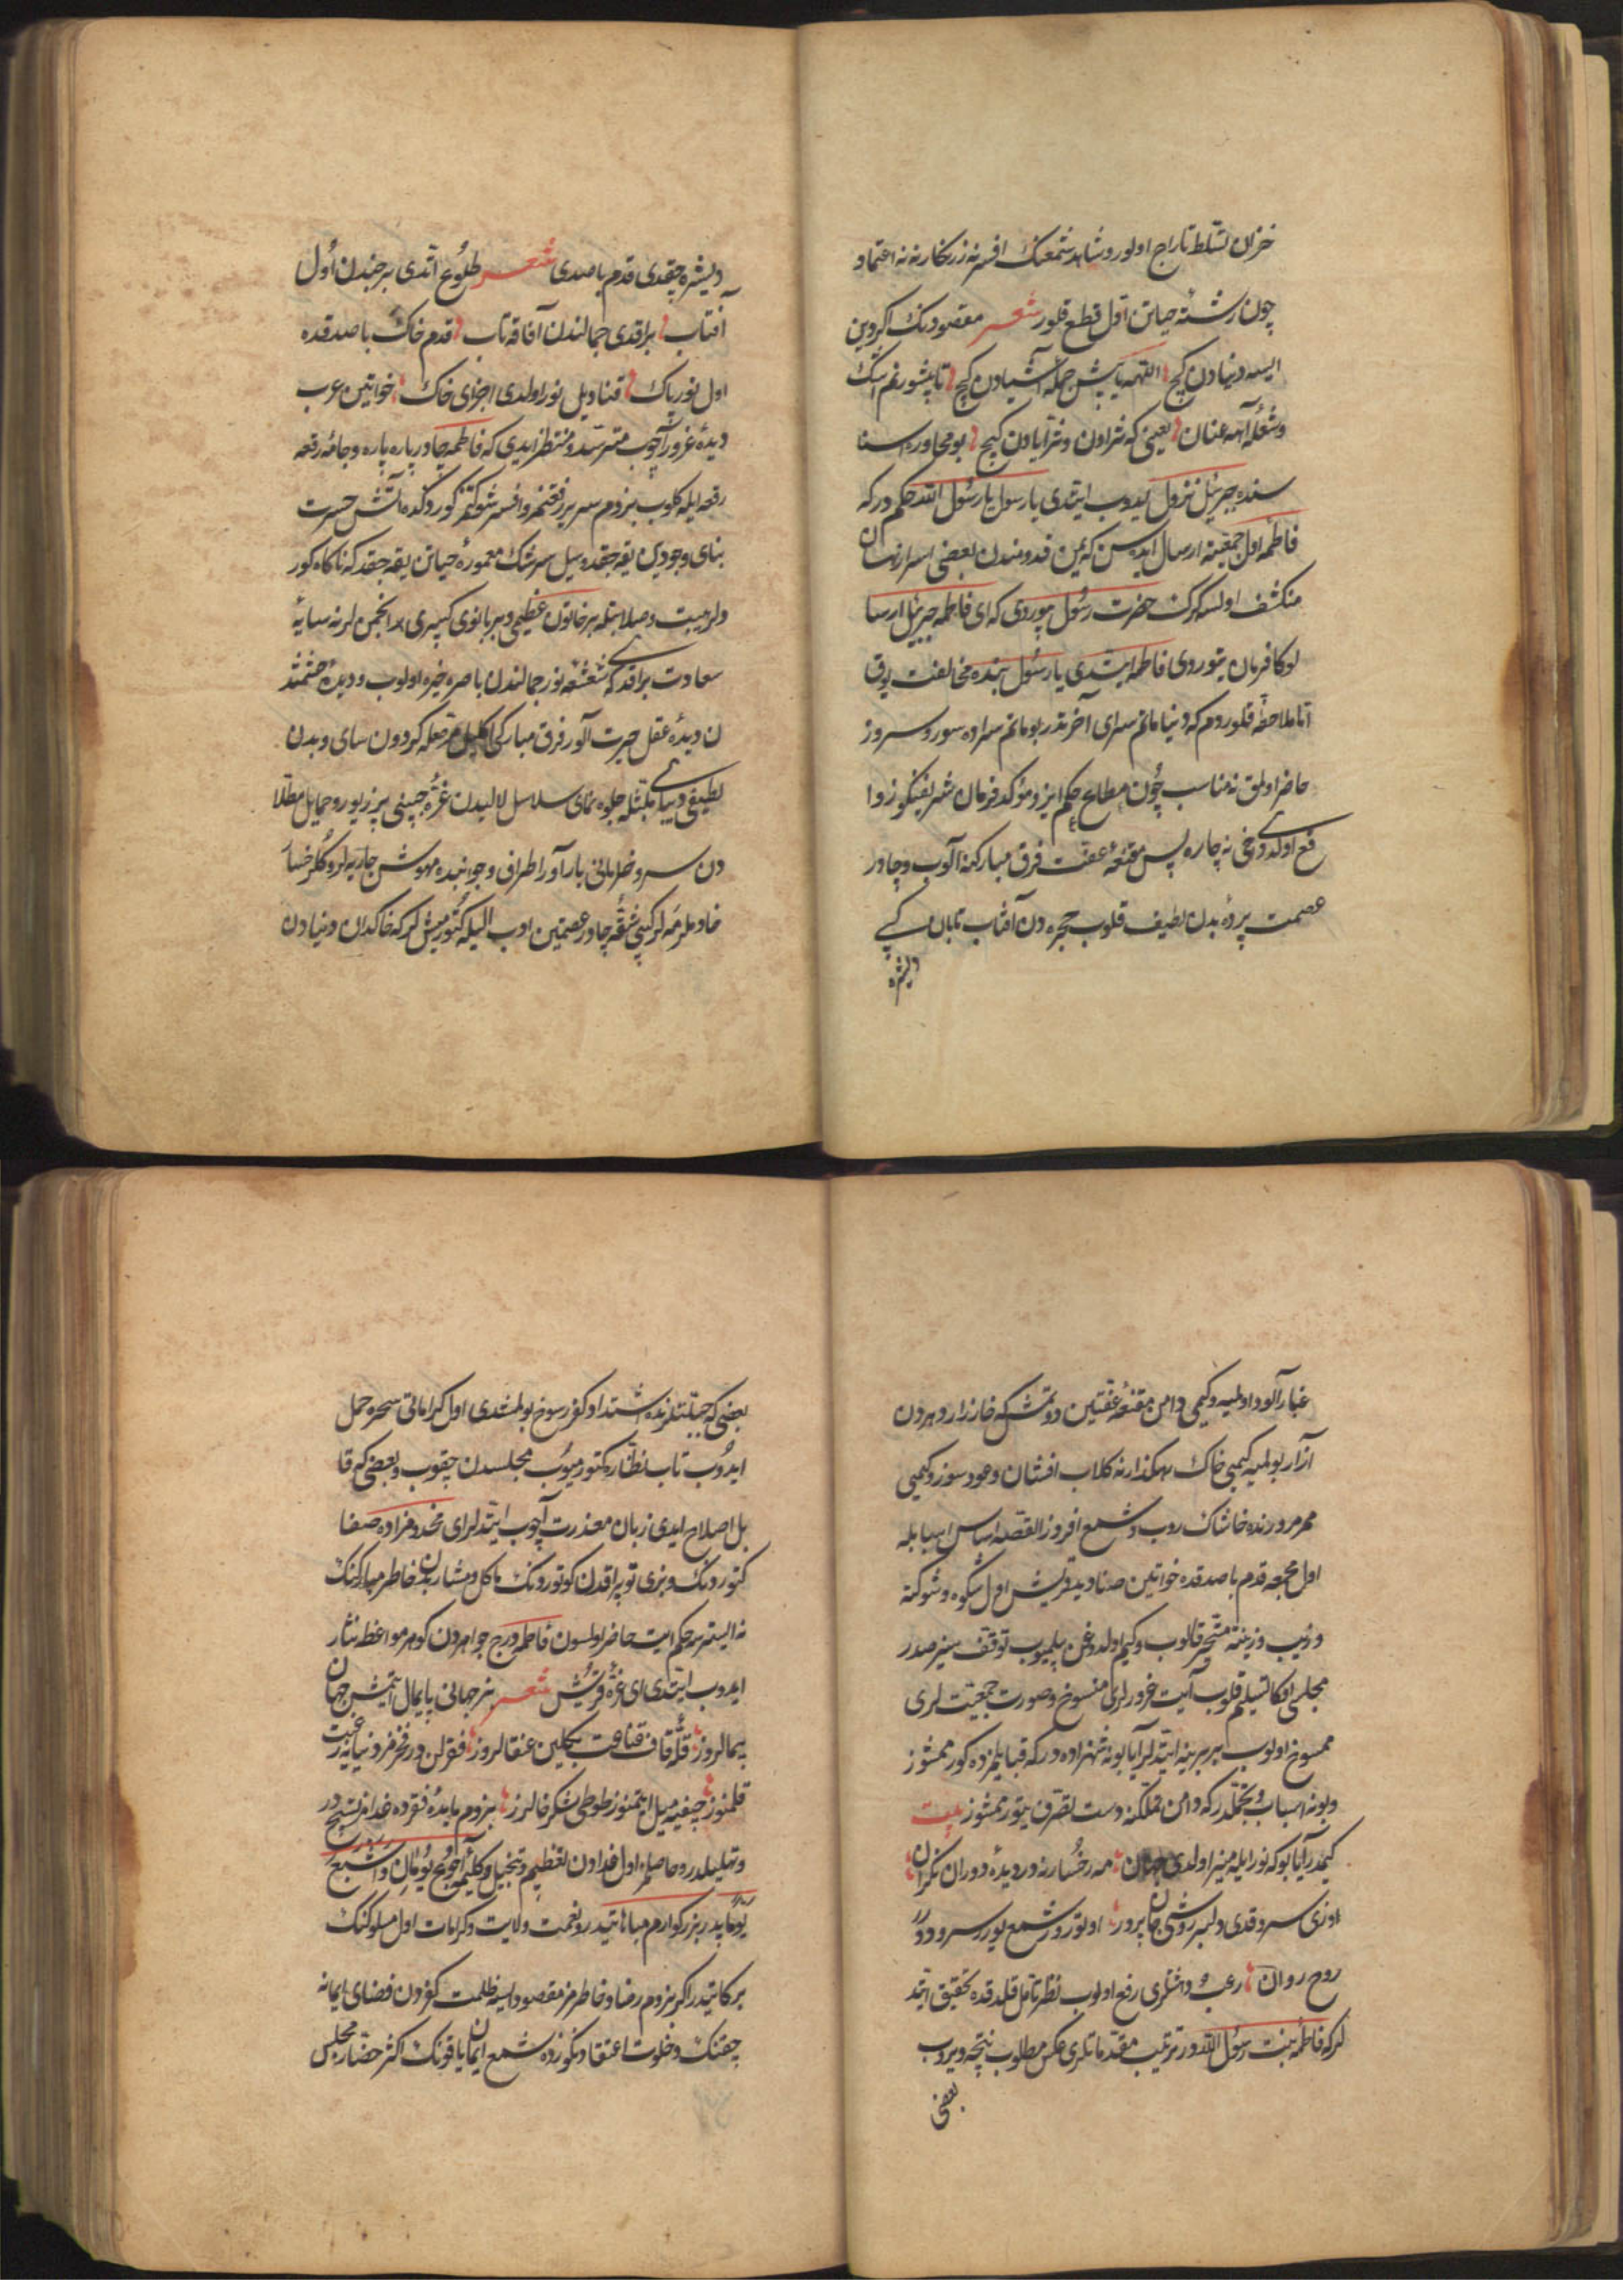 خزان تسلط تاراج اولور و شاهد شمعنك افسر زرنكارنه نه اعتماد
چون رشتهٔ حياتن اول قطع قلور شعر مقصودنك اكر وين
ايسه دنيادن كچ اللهمه ياپش جمله اشيادن كچ تاپشورغم اشك
و شعلهٔ آهه عنان يعنى كه ثرادن و ثريادن كچ بو محاوره اسنا
سنده جبرئيل نزول ايدوب ايتدى يا رسول يا رسول الله حكم دركه
فاطمه اول جمعيته ارسال ايده سن كه يمن قدومندن بعضى اسرار نهان
منكشف اولسه كرك حضرت رسول بيوردى كه اى فاطمه جبرئيل ارسا
لوكا فرمان يتوردى فاطمه ايتدى يا رسول بنده مخالفت يوق
اما ملاحظه قلوردم كه دنيا ماتم سراى آخرتدر بو ماتم سراده سور و سروره
حاضر اولمق نه مناسب چون مطاع حكم ايزد و مؤكد فرمان شريفنكوز وا
قع اولدى دخى نه چاره پس مقنعهٔ عفت فرق مباركنه آلوب و چادر
عصمت پردهٔ بدن لطيف قلوب حجره دن آفتاب تابان كبى
ديشره
ديشره چقدى قدم باصدى شعر طلوع اتدى برجندن اول
آفتاب براقدى جمالندن آفاقه تاب قدم خاك باصدقده
اول نور پاك قناديل نور اولدى اجزاى خاك خواتين عرب
ديدهٔ غرور آچوب مترصد و منتظر ايدى كه فاطمه چادر پاره پاره و جامهٔ رقعه
رقعه ايله كلوب بزوم سرير رفعتمز و افسر شوكتمز كوردكده آتش حسرت
بناى وجودين يقه جقدر و سيل سرشك معمورهٔ حياتن يقه جقدر كه ناكاه كور
دلر هيبت و صلابتله بر خاتون عظيمى و بر بانوى كبيرى انجمن لرنه سايهٔ
سعادت براقدى كه شعشعهٔ نور جمالندن باصره خيره اولوب و ديدهٔ حشمتند
ن ديدهٔ عقل حيرت آلور فرق مباركى اكليل مرصعله كردون ساى و بدن
لطيفى ديباى ملتله جلوه نماى سلاسل لاليدن غرهٔ جبينى پر زيور و حمايل مطلا
دن سرو خرامانى بارآور اطراف و جوانبنده مهوش جاريه لر و كلرخسا
خادملر مه لر كبى شقهٔ چادر عصمتين ادب اليله كتورميش لركه خاكدان دنيادن
غبارآلود اولميه و كيمى دامن مقنعهٔ عفتين دوتمش كه خارزار دهردن
آزار بولميه كيمى خاك رهكذارنه كلاب افشان و عود سوز و كيمى
ممر مرورنده خاشاك روب و شمع افروز القصه اساس اسبابله
اول مجمعه قدم باصدقده خواتين صناديد قريش اول شكوه و شوكته
و زيب و زينته متحير قالوب و كيم اولدوغن بيلميوب توقف سيز صدر
مجلسى اوكا تسليم قلوب آيت غرورلرى منسوخ و صورت جمعيت لرى
ممسوخ اولوب بربرينه ايتديلر آيا بو نه شهزاده دركه قبايلمزده كورممشوز
و بو نه اسباب تجملدر كه دامن تملكنه دست تصرف يتورممشوز بيت
كيمدر آيا بو كه نور ايله منير اولدى جهان مه رخسارنه در ديدهٔ دوران نكران
اوزى سرو قدى دلبر روشى جان پرور اوتورور شمع يورر سرو دورر
روح روان رعب و دهشتلرى رفع اولوب نظر تأمل قلدقده تحقيق ايتد
لركه فاطمه بنت رسول الله در ترتيب مقدماتلرى عكس مطلوب نتيجه ويروب
بعضى
بعضى كه جبلتلرنده اشتداد كفر رسوخ بولمشدى اول كراماتى سحره حمل
ايدوب تاب نظاره كتورميوب مجلسدن چقوب و بعضى كه قا
بل اصلاح ايدى زبان معذرت آچوب ايتديلر اى مخدومزاده صفا
كتوردنك و بزى توپراقدن كوتوردنك مأكل و مشاربدن خاطر مباركنك
نه ايستر سه حكم ايت حاضر اولسون فاطمه درج جواهردن كوهر مواعظ نثار
ايدوب ايتدى اى غرهٔ قريش شعر بز جهانى پايمال ايتمش جهان
پيمالروز قلهٔ قاف قناعت بكلين عنقالروز فقرلن در فخرمز دنيايه رغبت
قلمنوز جيفيه ميل ايتمنوز طوطى شكرخالرز بزوم مايدهٔ فقرده غدامز تسبيح در
و تهليلدر و حاصلمز اول خدادن تعظيم و تبجيل و كليم اجوع يوما و اشبع
يوما پدر بزركوارم مباهاتيدر و نعمت ولايت و كرامات اول سلوكنك
بركاتيدر اكر بزوم رضا و خاطرمز مقصود ايسه ظلمت كفردن فضاى ايمانه
چقنك و خلوت اعتقادنكوزده شمع ايمان ياقونك اكثر حضار مجلس